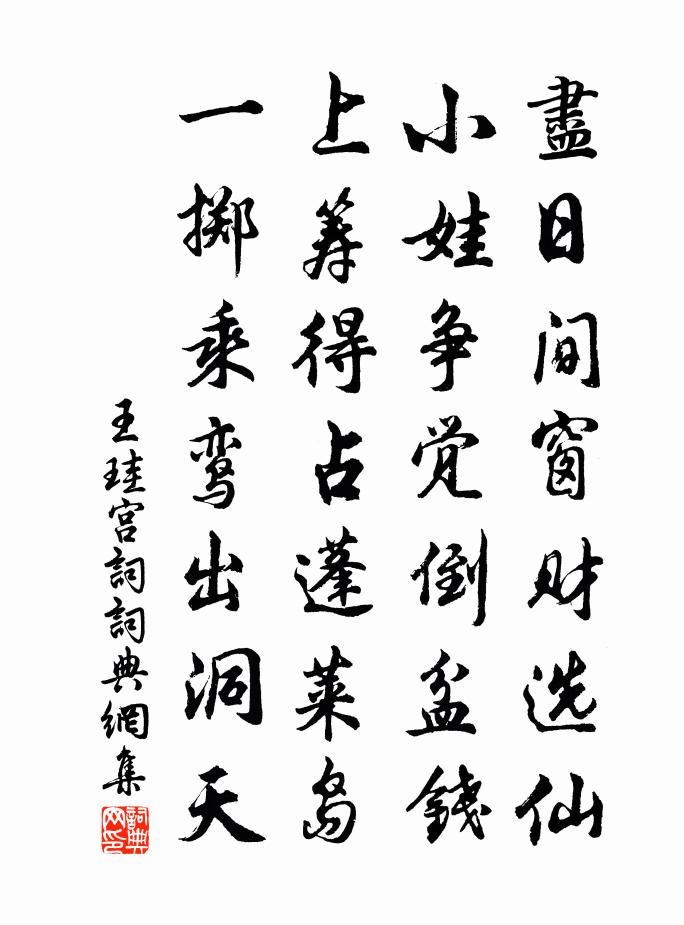 盡日间窗财选仙
小娃争觉倒盆錢
上筹得占蓬莱岛
一掷乘鸾出洞天
王珪宫詞詞典網集
詞典网印